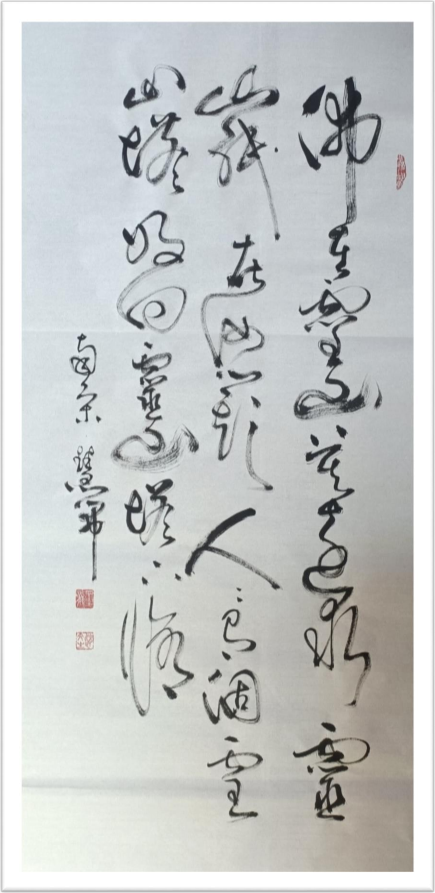 佛在靈山莫遠求靈
山祇在汝心頭人〻有個靈
山塔好向靈山塔下修
南京慧